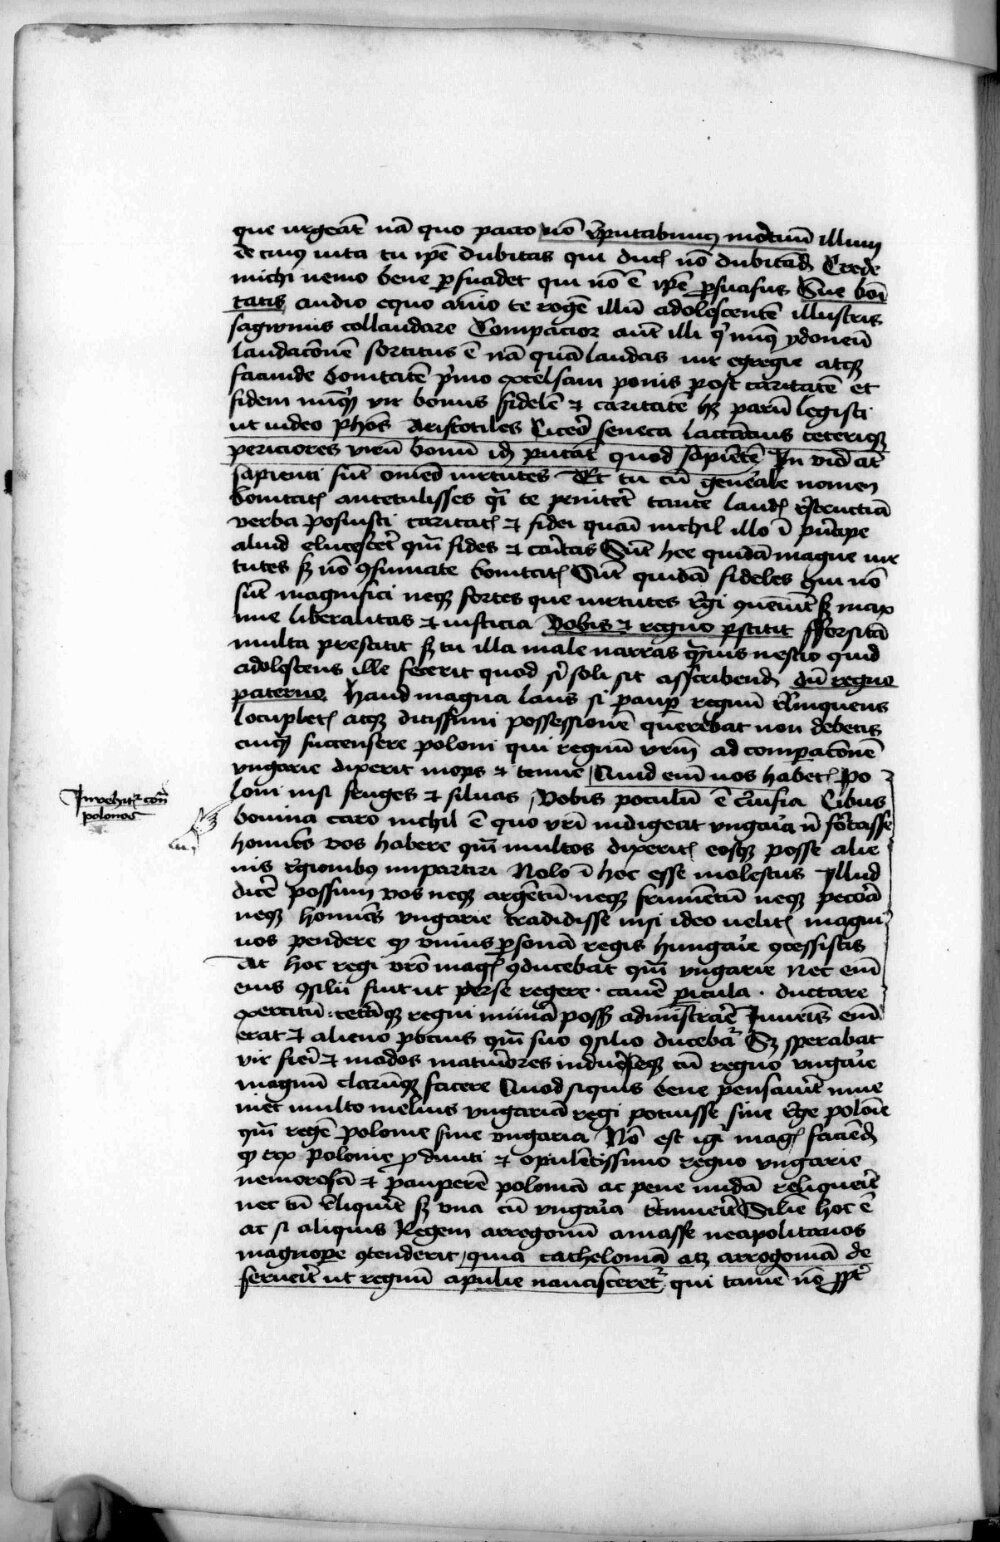 que urgeāt nā quo pacto nō r̄putabimus mortuū illum
de cuiꝰ uita tu ip̄e dubitas qui duc̄ nō dubitād̄ Crede
michi nemo bene ꝑsuadet qui nō ē ip̄e ꝑsuasus Sue boni
tatis audio equo aīo te rogē illū adolescentē illustris
sagwinis collaudare Compacior aūt illi qͥ nūqͣ ydoneū
laudatōnē sortitus ē nā quā laudas uir egregie atqꝫ
facunde bonitatē pͥmo excelsam ponis post caritatē et
fidem nūqͣ vir bonus fidelē ⁊ caritatē hꝫ parū legisti
ut uideo ph̄os Aristotiles Cicero seneca lactātius ceteriqꝫ
periciores virū bonū id̄ putāt quod sapiētē In
sapienti sūt om̄es uirtutes Et tu cū generale nomen
bonitatꝭ antetulisses qͣi te penitet̄ tante laudꝭ
verba posuisti caritatꝭ ⁊ fidei quā nichil illo ī pͥncipe
aliud elucescet̄ qͣm fides ⁊ cāitas Sūt hee quidā magne uir
tutes sꝫ nō ꝯsumate bonitatꝭ Sūt quidā fideles qui nō
sūt magnifici neqꝫ fortes que uirtutes r̄gi ꝯueniūt sꝫ max
ime liberalitas ⁊ iusticia Vobis ⁊ regno p̄stitit fforsitā
multa prestitit sꝫ tu illa male narras qͣmuis nescio quid
adolescens ille fecerit quod si soli sit asscribend̄ Cū regno
paterno Haud magna laus si pauꝑ regnū r̄linquens
locupletꝭ atqꝫ ditissimi possessionē querebat non debetis
cuiqͣ succensere poloni qui regnū vr̄m ad comparatōnē
vngarie dixerit inops ⁊ tenue Quid em̄ uos habetꝭ po
loni nisi fruges ⁊ siluas Vobis poculū ē cͥuisia Cibus
bouina caro nichil ē quo vr̄i indigeat vngaria n̄ fortasse
homines vos habere qͣm multos dixeritꝭ eosqꝫ posse alie
nis r̄gionibꝰ impartiri Nolo ī hoc esse molestus Illud
dicē possum vos neqꝫ argētū neqꝫ frumētū neqꝫ pecorā
neqꝫ homines vngarie tradidisse nisi ideo uelitꝭ magni
uos pendere ꝙ unius ꝑsonā regis hungarie ꝯcessistis
At hoc regi vr̄o magꝭ ꝯducebat qͣm vngarie Nec em̄
eius ꝯsilii fuit ut perse regere · cauē pͥcula · ductare
exercitū · cetāqꝫ regni munia poss̄ administrāe Iuuenis em̄
erat ⁊ alieno potius qͣm suo ꝯsilio ducebaͬ Sꝫ sperabat
vir fieri ⁊ modos maturiores induereqꝫ cū regno vngarie
magnū clarūqꝫ facere Quod siquis bene pensauit inue
niet multo melius vngariā regi potuisse sine r̄ge polonie
qͣm regē polonie sine vngaria Nō est igͥ magꝭ faciēd̄
ꝙ rex polonie ꝓ diuiti ⁊ opulētissimo regno vngarie
nemorosā ⁊ pauperē poloniā ac pene nudā reliquerit
nec em̄ r̄liquit sꝫ una cū vngaria Sīle hoc ē
ac si aliquis Regem arragonū amasse neapolitanos
magnopere ꝯtenderit quia catheloniā atqꝫ arrogoniā de
seruerit ut regnū apulie nancisceretͬ qui tamē nō ꝓpt̄
Inuehitͬ contͣ
polonos